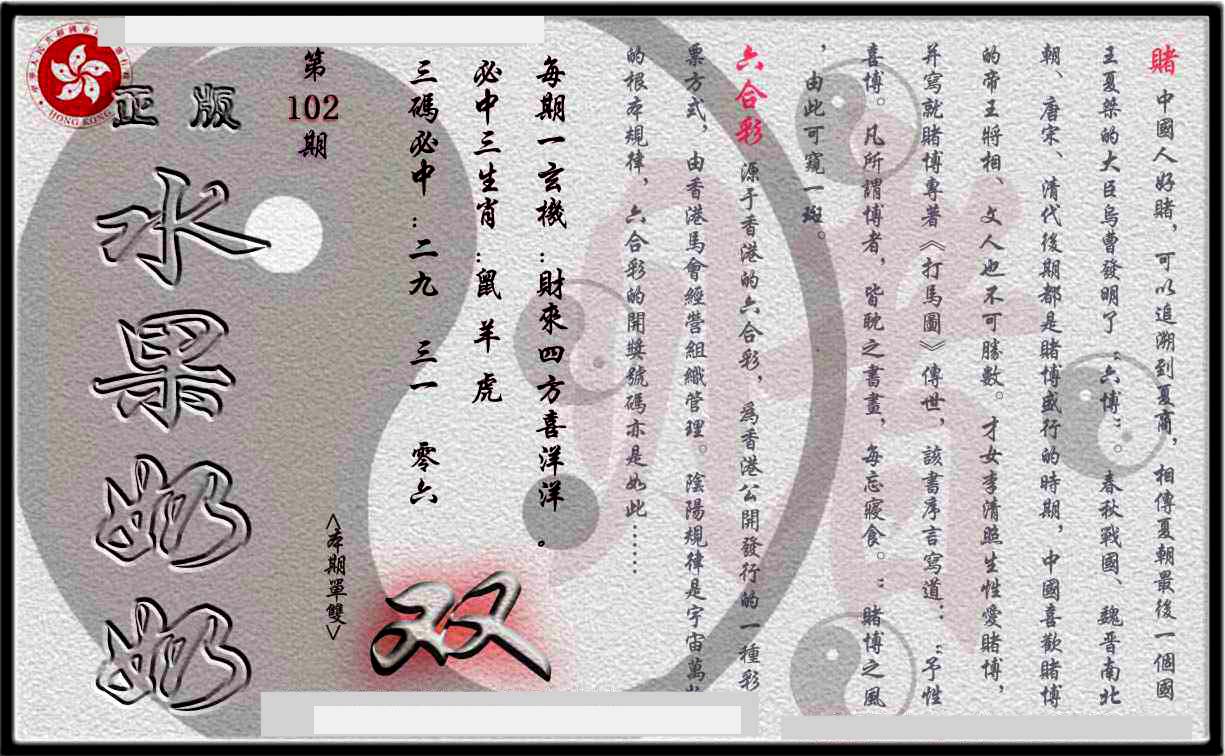 賭 中國人好賭，可以追溯到夏商，相傳夏朝最後一個國
王夏桀的大臣烏曹發明了“六博”。春秋戰國、魏晋南北
朝、唐宋、清代後期都是賭博盛行的時期，中國喜歡賭博
的帝王將相、文人也不可勝數。才女李清照生性愛賭博，
并寫就賭博專著《打馬圖》傳世，該書序言寫道：“予性
喜博。凡所謂博者，皆耽之書畫，每忘寢食。”賭博之風
，由此可窺一斑。
六合彩 源于香港的六合彩，爲香港公開發行的一種彩
票方式，由香港馬會經營組織管理。陰陽規律是宇宙萬
的根本規律，六合彩的開獎號碼亦是如此……
每期一玄機：財來四方喜洋洋。
必中三生肖：鼠 羊 虎
三碼必中：二九 三一 零六
<本期單雙>
双
第
102
期
正版
水果奶奶
HONG KONG